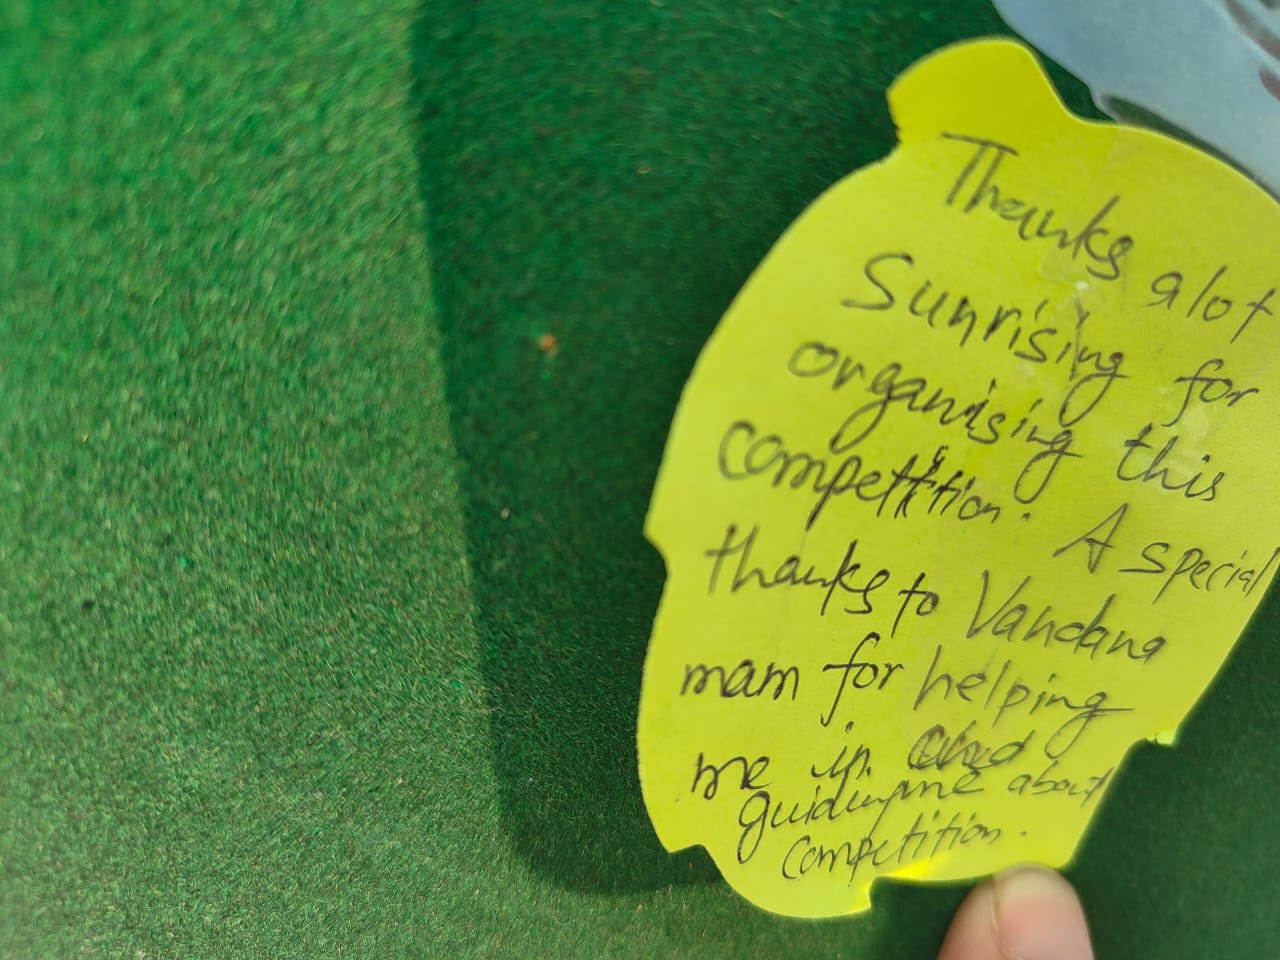 Thanks alot
Sunrising for
organising this
competition. A special
thanks to Vandana
mam for helping
me in and
guiding me about
competition.